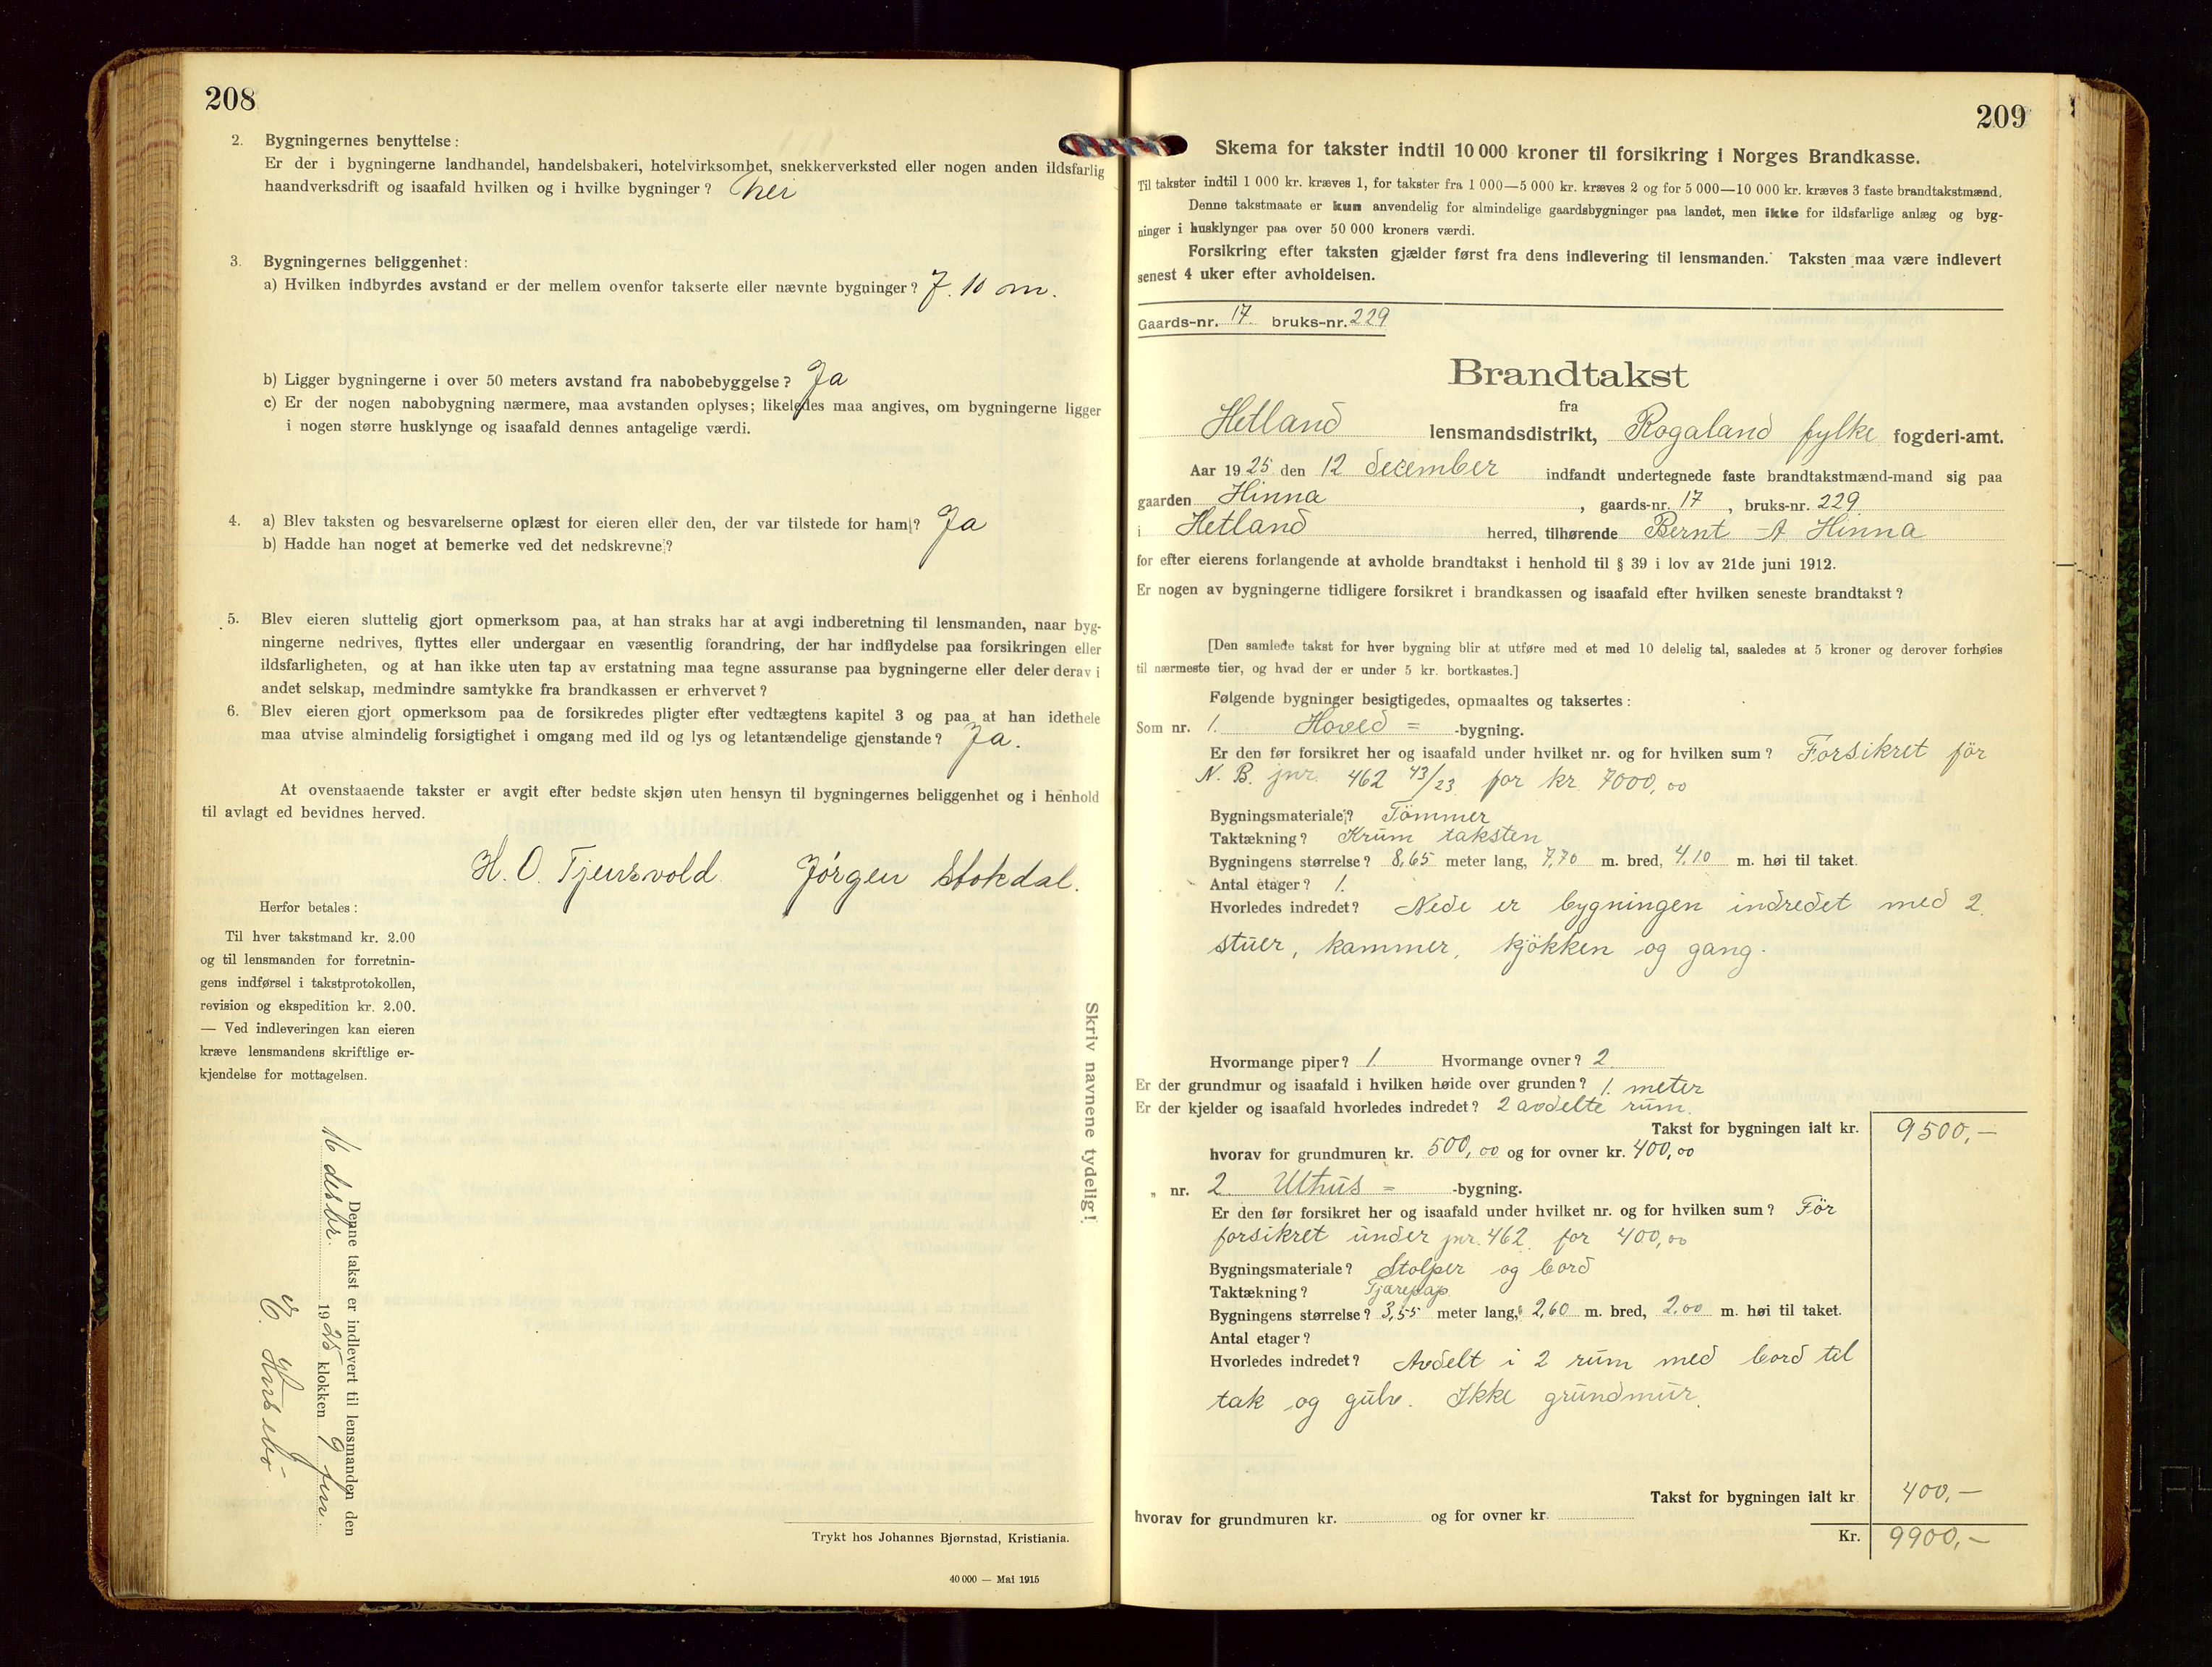 208
2. Bygningernes benyttelse:
Er der i bygningerne landhandel, handelsbakeri, hotelvirksomhet, snekkerverksted eller nogen anden ildsfarlig
haandverksdrift og isaafald hvilken og i hvilke bygninger? Nei
3. Bygningernes beliggenhet:
a) Hvilken indbyrdes avstand er der mellem ovenfor takserte eller nævnte bygninger? 7.10 m.
b) Ligger bygningerne i over 50 meters avstand fra nabobebyggelse? Ja
c) Er der nogen nabobygning nærmere, maa avstanden oplyses; likeledes maa angives, om bygningerne ligger
i nogen større husklynge og isaafald dennes antagelige værdi.
4. a) Blev taksten og besvarelserne oplæst for eieren eller den, der var tilstede for ham? Ja
b) Hadde han noget at bemerke ved det nedskrevne?
5. Blev eieren sluttelig gjort opmerksom paa, at han straks har at avgi indberetning til lensmanden, naar byg-
ningerne nedrives, flyttes eller undergaar en væsentlig forandring, der har indflydelse paa forsikringen eller
ildsfarligheten, og at han ikke uten tap av erstatning maa tegne assuranse paa bygningerne eller deler derav i
andet selskap, medmindre samtykke fra brandkassen er erhvervet?
6. Blev eieren gjort opmerksom paa de forsikredes pligter efter vedtægtens kapitel 3 og paa at han idethele
maa utvise almindelig forsigtighet i omgang med ild og lys og letantændelige gjenstande? Ja.
At ovenstaaende takster er avgit efter bedste skjøn uten hensyn til bygningernes beliggenhet og i henhold
til avlagt ed bevidnes herved.
H. O. Tjensvold Jørgen Stokdal.
Herfor betales:
Til hver takstmand kr. 2.00
og til lensmanden for forretnin-
gens indførsel i takstprotokollen,
revision og ekspedition kr. 2.00.
— Ved indleveringen kan eieren
kræve lensmandens skriftlige er-
kjendelse for mottagelsen.
Denne takst er indlevert til lensmanden den
16 desbr. 1925 klokken 9 fm.
Skriv navnene tydelig!
Trykt hos Johannes Bjørnstad, Kristiania.
40 000 — Mai 1915
209
Skema for takster indtil 10 000 kroner til forsikring i Norges Brandkasse.
Til takster indtil 1 000 kr. kræves 1, for takster fra 1 000—5 000 kr. kræves 2 og for 5 000—10 000 kr. kræves 3 faste brandtakstmænd.
Denne takstmaate er kun anvendelig for almindelige gaardsbygninger paa landet, men ikke for ildsfarlige anlæg og byg-
ninger i husklynger paa over 50 000 kroners værdi.
Forsikring efter taksten gjælder først fra dens indlevering til lensmanden. Taksten maa være indlevert
senest 4 uker efter avholdelsen.
Gaards-nr. 17 bruks-nr. 229
Brandtakst
fra
Hetland lensmandsdistrikt, Rogaland fylke fogderi-amt.
Aar 1925 den 12 december indfandt undertegnede faste brandtakstmænd-mand sig paa
gaarden Hinna, gaards-nr. 17, bruks-nr. 229
i Hetland herred, tilhørende Bernt A Hinna
for efter eierens forlangende at avholde brandtakst i henhold til § 39 i lov av 21de juni 1912.
Er nogen av bygningerne tidligere forsikret i brandkassen og isaafald efter hvilken seneste brandtakst?
[Den samlede takst for hver bygning blir at utføre med et med 10 delelig tal, saaledes at 5 kroner og derover forhøies
til nærmeste tier, og hvad der er under 5 kr. bortkastes.]
Følgende bygninger besigtigedes, opmaaltes og taksertes:
Som nr. 1. Hoved = -bygning.
Er den før forsikret her og isaafald under hvilket nr. og for hvilken sum? Forsikret før
N. B. jnr. 462 43/23 for kr. 7000,00
Bygningsmateriale? Tømmer
Taktækning? Krum taksten
Bygningens størrelse? 8,65 meter lang, 7,70 m. bred, 4,10 m. høi til taket.
Antal etager? 1.
Hvorledes indredet? Nede er bygningen indredet med 2
stuer, kammer, kjøkken og gang.
Hvormange piper? 1. Hvormange ovner? 2.
Er der grundmur og isaafald i hvilken høide over grunden? 1. meter
Er der kjelder og isaafald hvorledes indredet? 2 avdelte rum.
Takst for bygningen ialt kr. 9500,—
hvorav for grundmuren kr. 500,00 og for ovner kr. 400,00
„ nr. 2 Uthus = -bygning.
Er den før forsikret her og isaafald under hvilket nr. og for hvilken sum? Før
forsikret under jnr. 462 for 400,00
Bygningsmateriale? Stolper og bord
Taktækning? Tjærepap
Bygningens størrelse? 3,55 meter lang, 2,60 m. bred, 2,00 m. høi til taket.
Antal etager?
Hvorledes indredet? Avdelt i 2 rum med bord til
tak og gulv. Ikke grundmur.
Takst for bygningen ialt kr 400,—
hvorav for grundmuren kr. og for ovner kr.
Kr. 9900,—